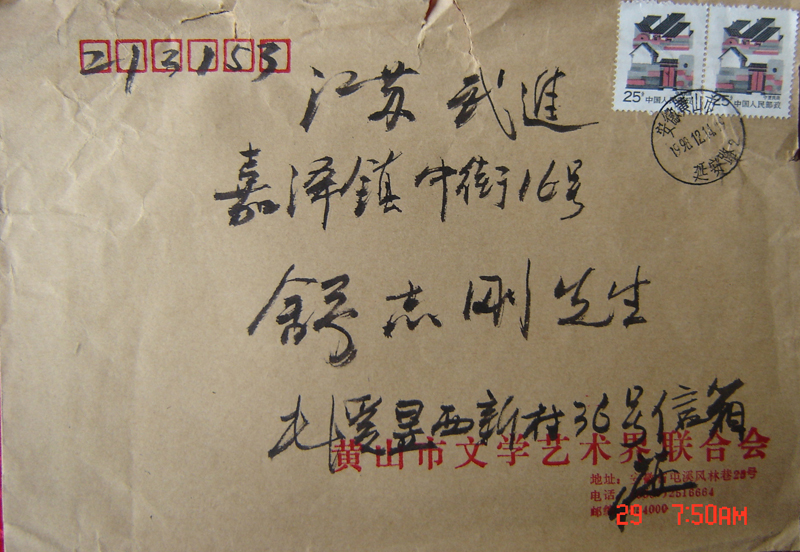 213153
25分 中国人民邮政
25分 中国人民邮政
安徽黄山市
1998.12.14
江苏 武进
嘉泽镇 中街16号
舒志刚 先生
昱西新村36号信箱
黄山市文学艺术界联合会
地址: 屯溪风林巷23号
电话 2516664
邮编 4000
29 7:50AM